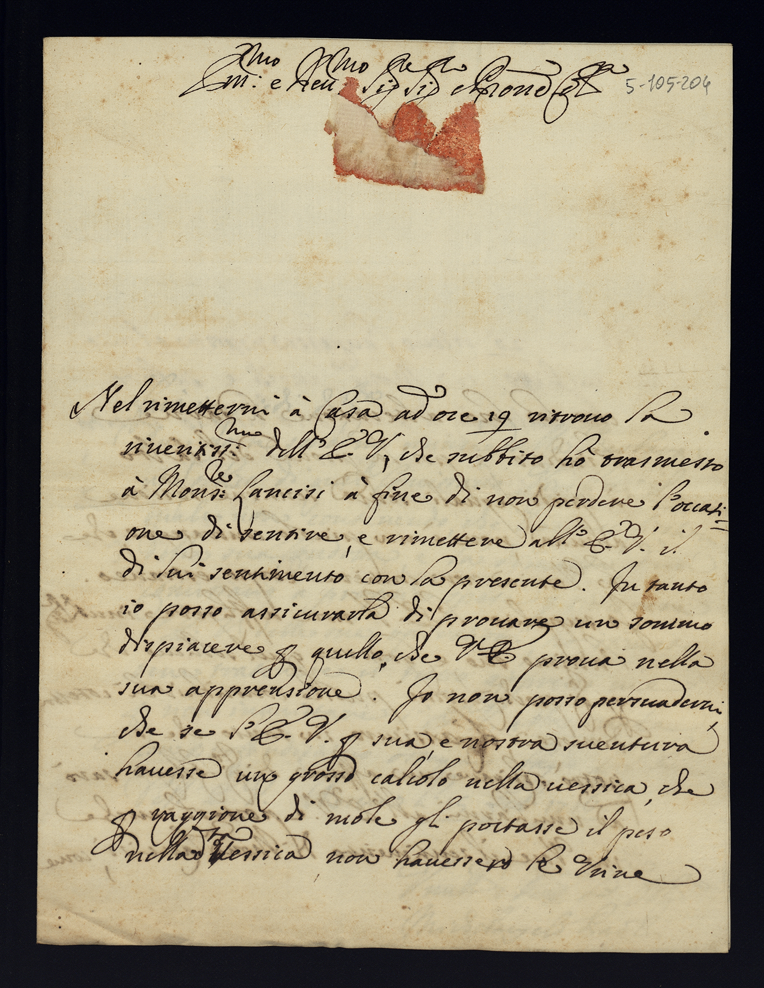 Em:mo e Reu:mo Sig.re Sig.re e Pṛone Col.mo
5-105-204
Nel rimettermi à Casa ad ore 19 ritrovo la
riveritiss:ma dell'E.V., che subbito hò trasmesso
à Mons:re Lancisi à fine di non perdere l'occasi=
one di sentire, e rimettere all'E.V. il
di lui sentimento con la presente. In tanto
io posso assicurarla di provare un sommo
dispiacere p quello, che V.E. prova nella
sua apprensione. Io non posso persuadermi,
che se l'E.V. p sua, e nostra sventura
havesse un grosso calcolo nella vessica, che
p raggione di mole gli portasse il peso
nella Vessica non havessero le Urine